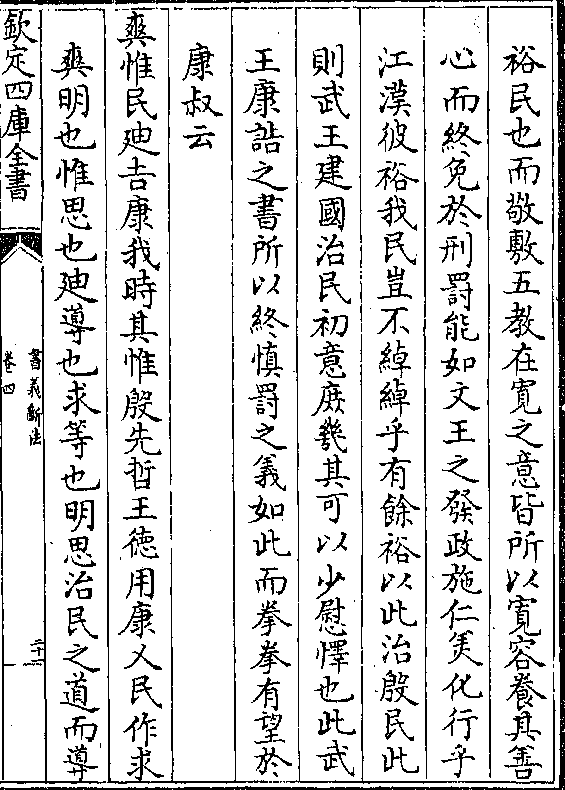 裕民也而敬敷五教在寛之意皆所以寛容養其善
心而終免於刑罰能如文王之發政施仁美化行乎
江漢彼裕我民豈不綽綽乎有餘裕以此治殷民此
則武王建國治民初意庶幾其可以少慰懌也此武
王康誥之書所以終慎罰之義如此而拳拳有望於
康叔云
爽惟民廸吉康我時其惟殷先哲王德用康乂民作求
爽明也惟思也廸導也求等也明思治民之道而導
欽定四庫全書
書義斷法
卷四
二十二